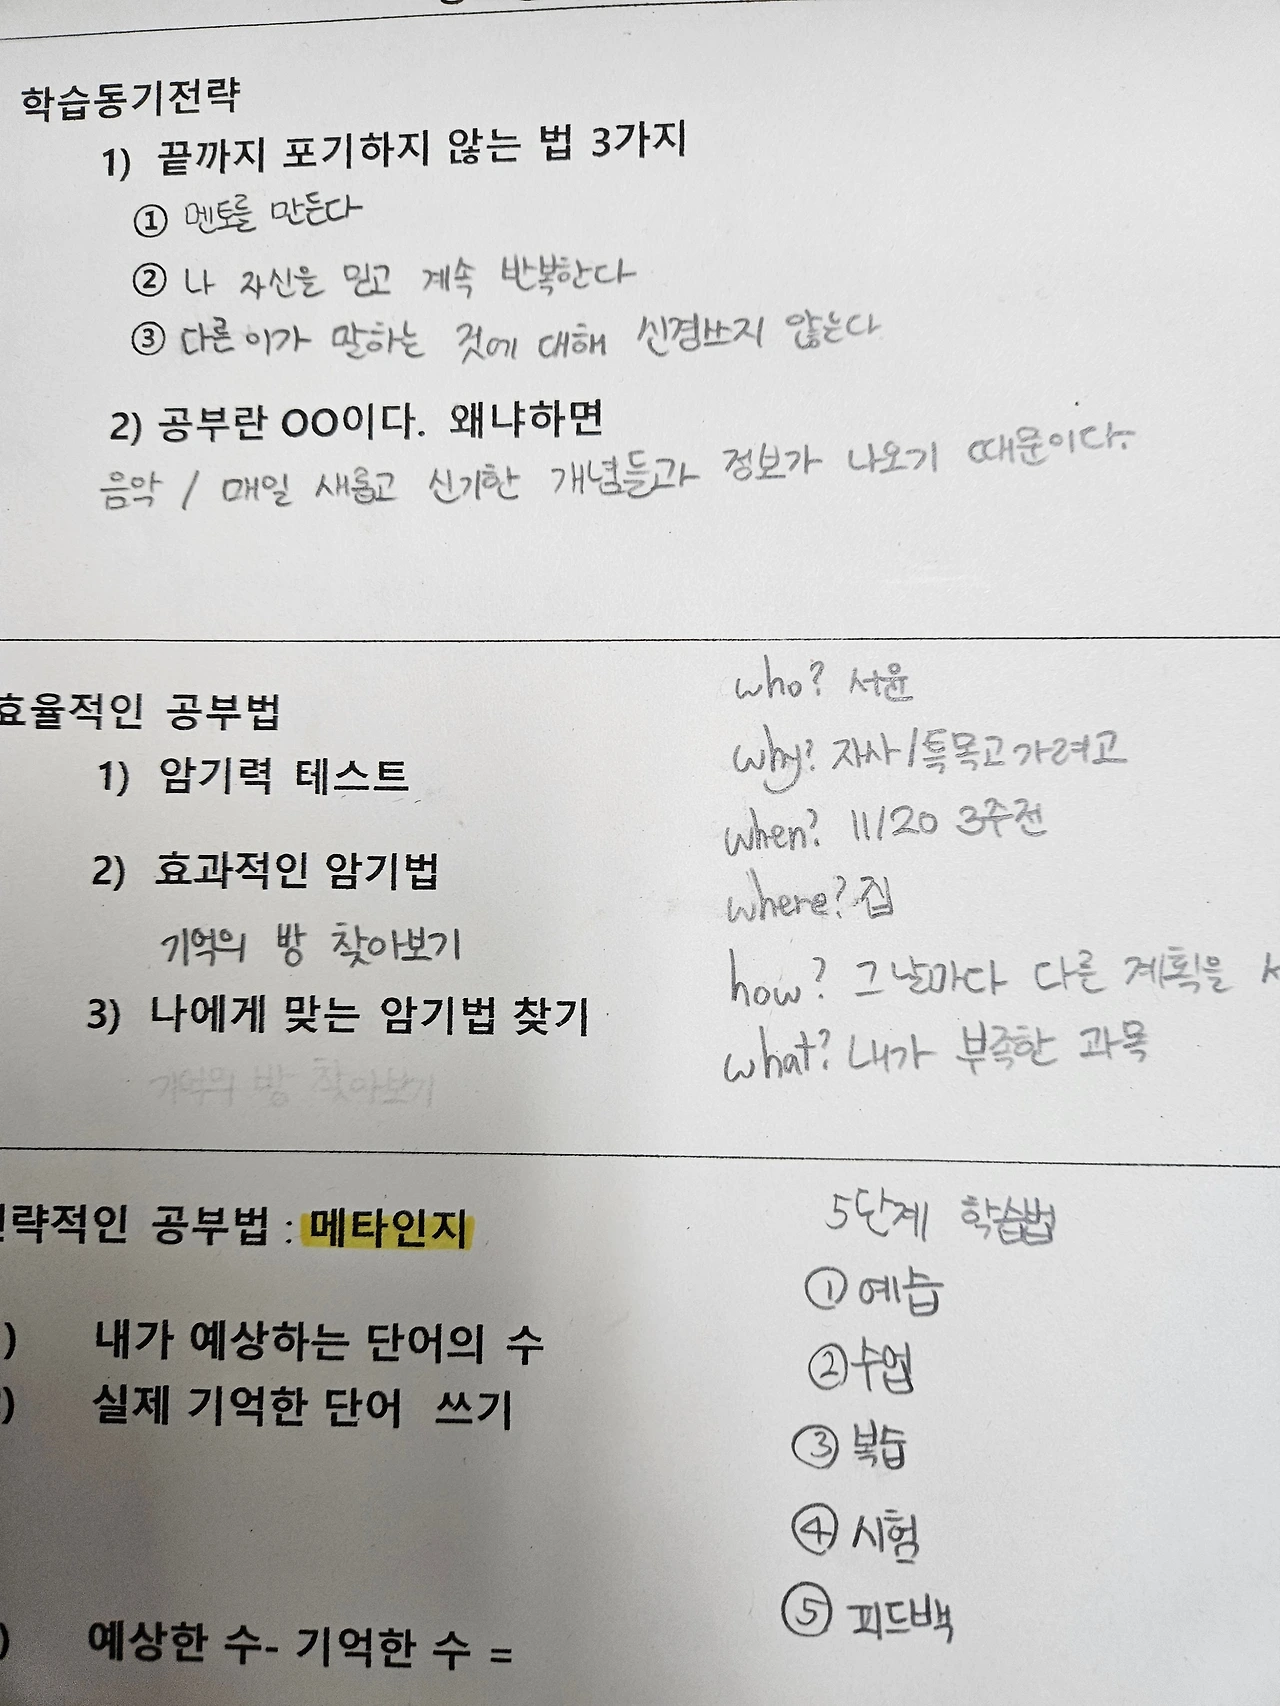 학습동기전략
1) 끝까지 포기하지 않는 법 3가지
① 멘토를 만든다
② 나 자신을 믿고 계속 반복한다
③ 다른 이가 말하는 것에 대해 신경쓰지 않는다
2) 공부란 OO이다. 왜냐하면
음악 / 매일 새롭고 신기한 개념들과 정보가 나오기 때문이다.
효율적인 공부법
1) 암기력 테스트
2) 효과적인 암기법
기억의 방 찾아보기
3) 나에게 맞는 암기법 찾기
기억의 방 찾아보기
who? 서윤
why? 자사/특목고가려고
when? 11/20 3주전
where? 집
how? 그날마다 다른 계획을
what? 내가 부족한 과목
전략적인 공부법 : 메타인지
) 내가 예상하는 단어의 수
) 실제 기억한 단어 쓰기
) 예상한 수- 기억한 수 =
5단계 학습법
① 예습
② 수업
③ 복습
④ 시험
⑤ 피드백